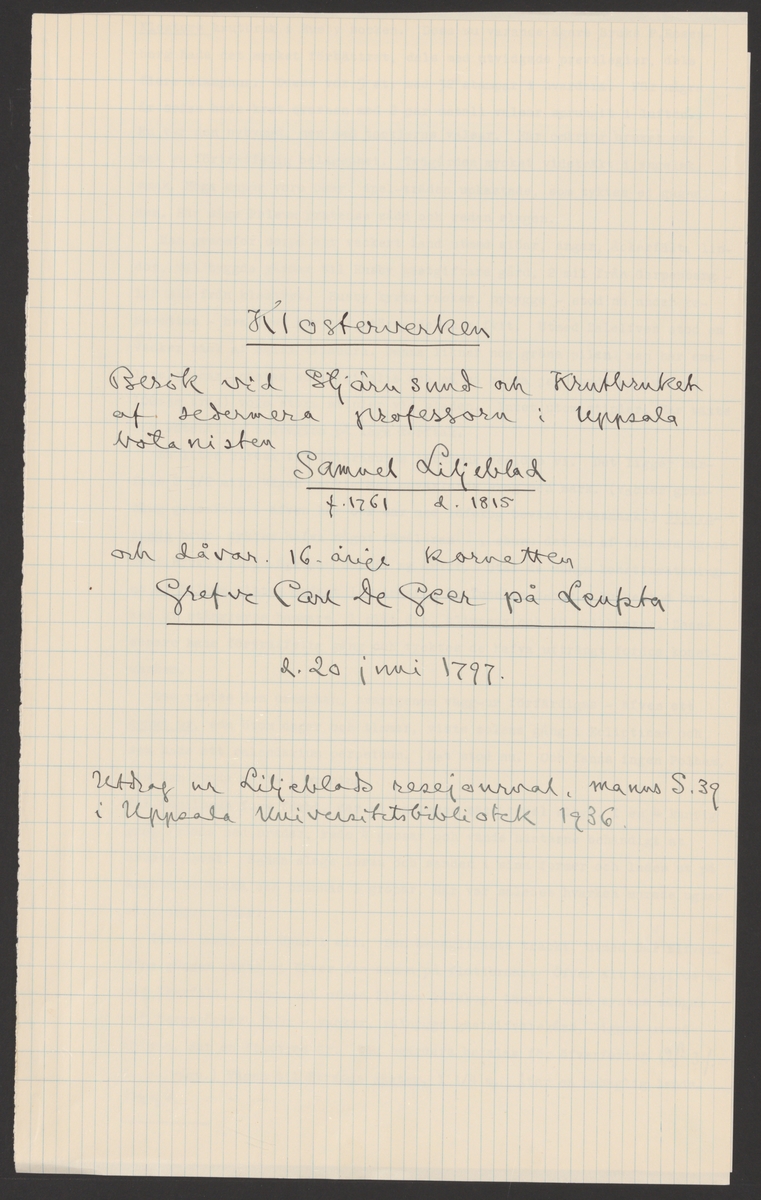 Klosterverken
Besök vid Stjärnsund och Krutbruket
af sedermera professorn i Uppsala
botanisten
Samuel Liljeblad
f. 1761 d. 1815
och dåvar. 16-årige kornetten
Grefve Carl De Geer på Leufsta
d. 20 juni 1797.
Utdrag ur Liljeblads resejournal, manus S. 39
i Uppsala Universitetsbibliotek 1936.